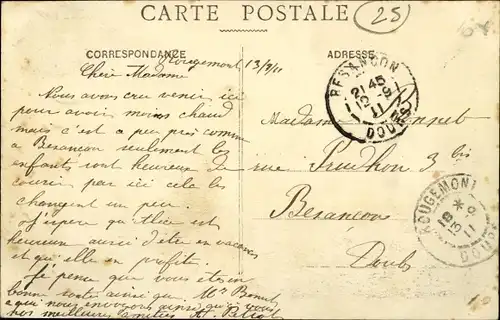 CARTE POSTALE
25
CORRESPONDANCE
ADRESSE
Rougemont 13/9/11
Chère Madame
Nous avons cru venir ici
pour avoir moins chaud
mais c'est a peu près comme
a Besançon seulement les
enfants sont heureux de
courir par ici cela les
changent un peu.
J'espère qu'Alice est
heureuse aussi d'être en vacances
et qu'elle en profite.
Je pense que vous êtes en
bonne santé ainsi que Mr
a qui nous envoyons ainsi qu'à vous
nos meilleures amitiés
Madame
rue Prudhon 3 bis
Besançon
Doubs
BESANÇON
21 45
12 -9
11
DOUBS
ROUGEMONT
18 *
13 -9
11
DOUBS